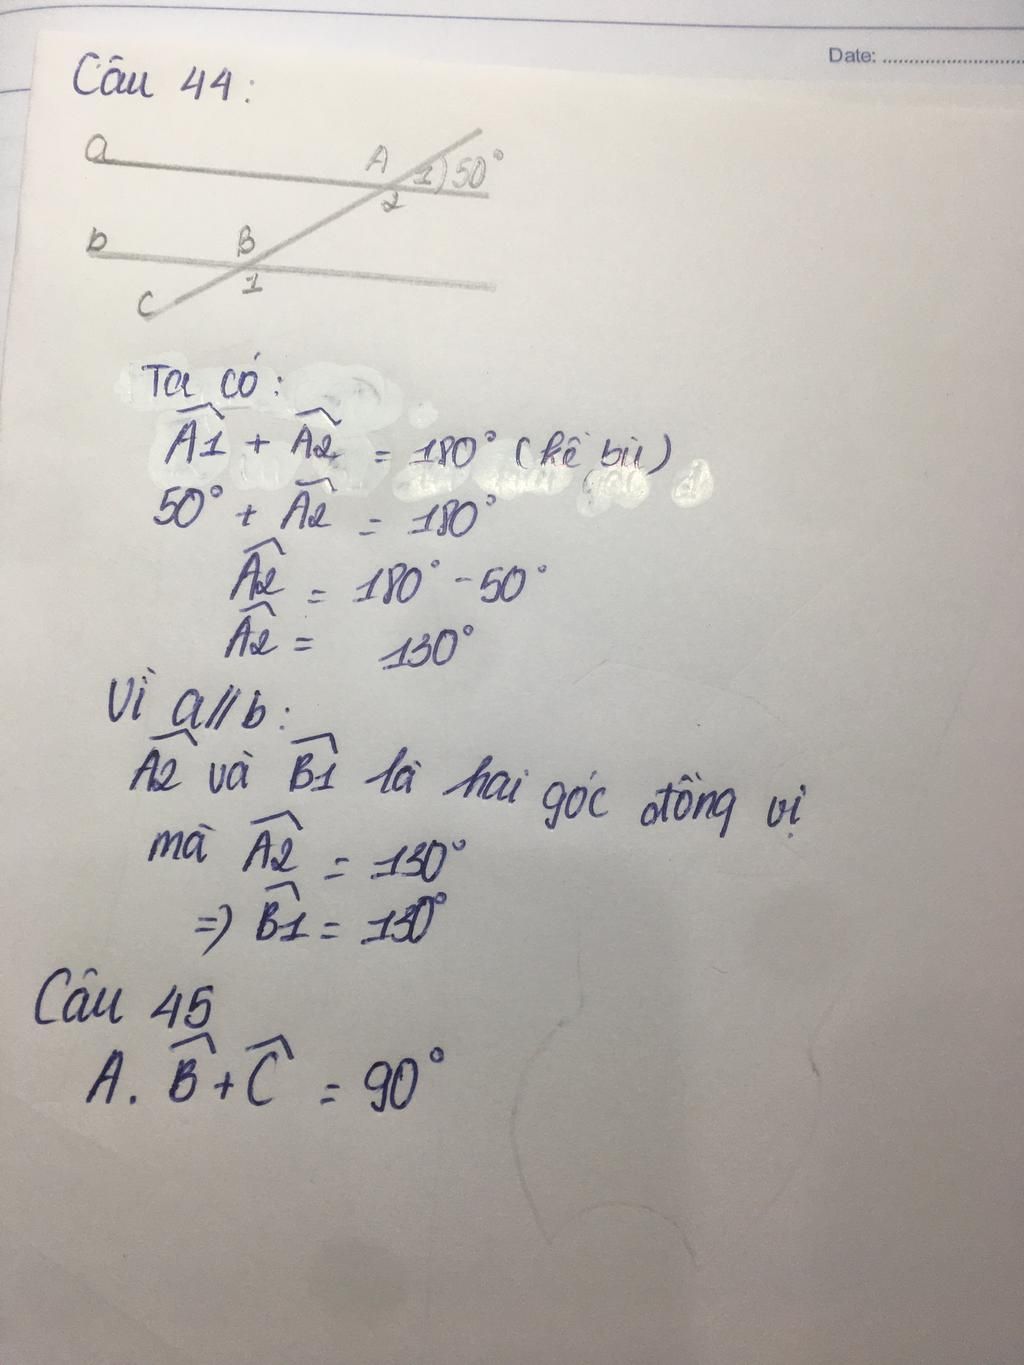 Date: ........................
Câu 44:
a
A
1) 50°
2
b
B
1
C
Ta có:
A1 + A2 = 180° (kề bù)
50° + A2 = 180°
A2 = 180° - 50°
A2 = 130°
Vì a//b:
A2 và B1 là hai góc đồng vị
mà A2 = 130°
=> B1 = 130°
Câu 45
A. B + C = 90°